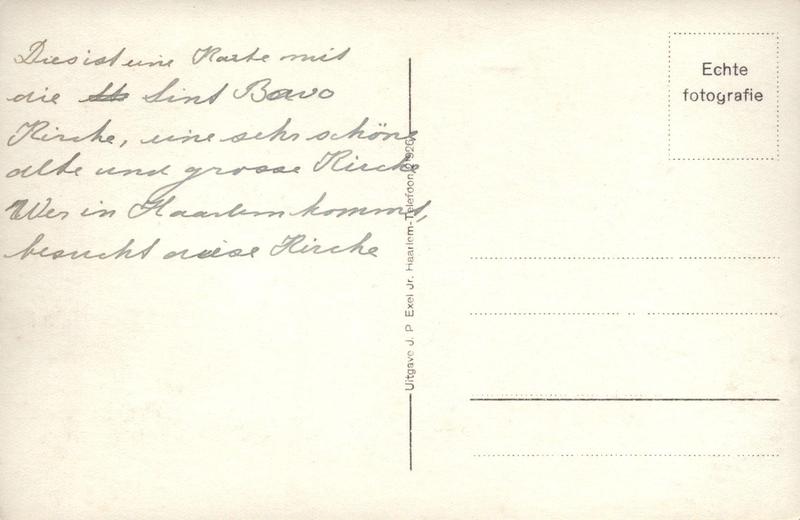 Dies ist eine Karte mit
die Sint Bavo
Kirche, eine sehr schöne
alte und grosse Kirche
Wer in Haarlem kommt,
besucht diese Kirche
Uitgave J. P. Exel Jr. Haarlem-Telefoon 21926
Echte
fotografie